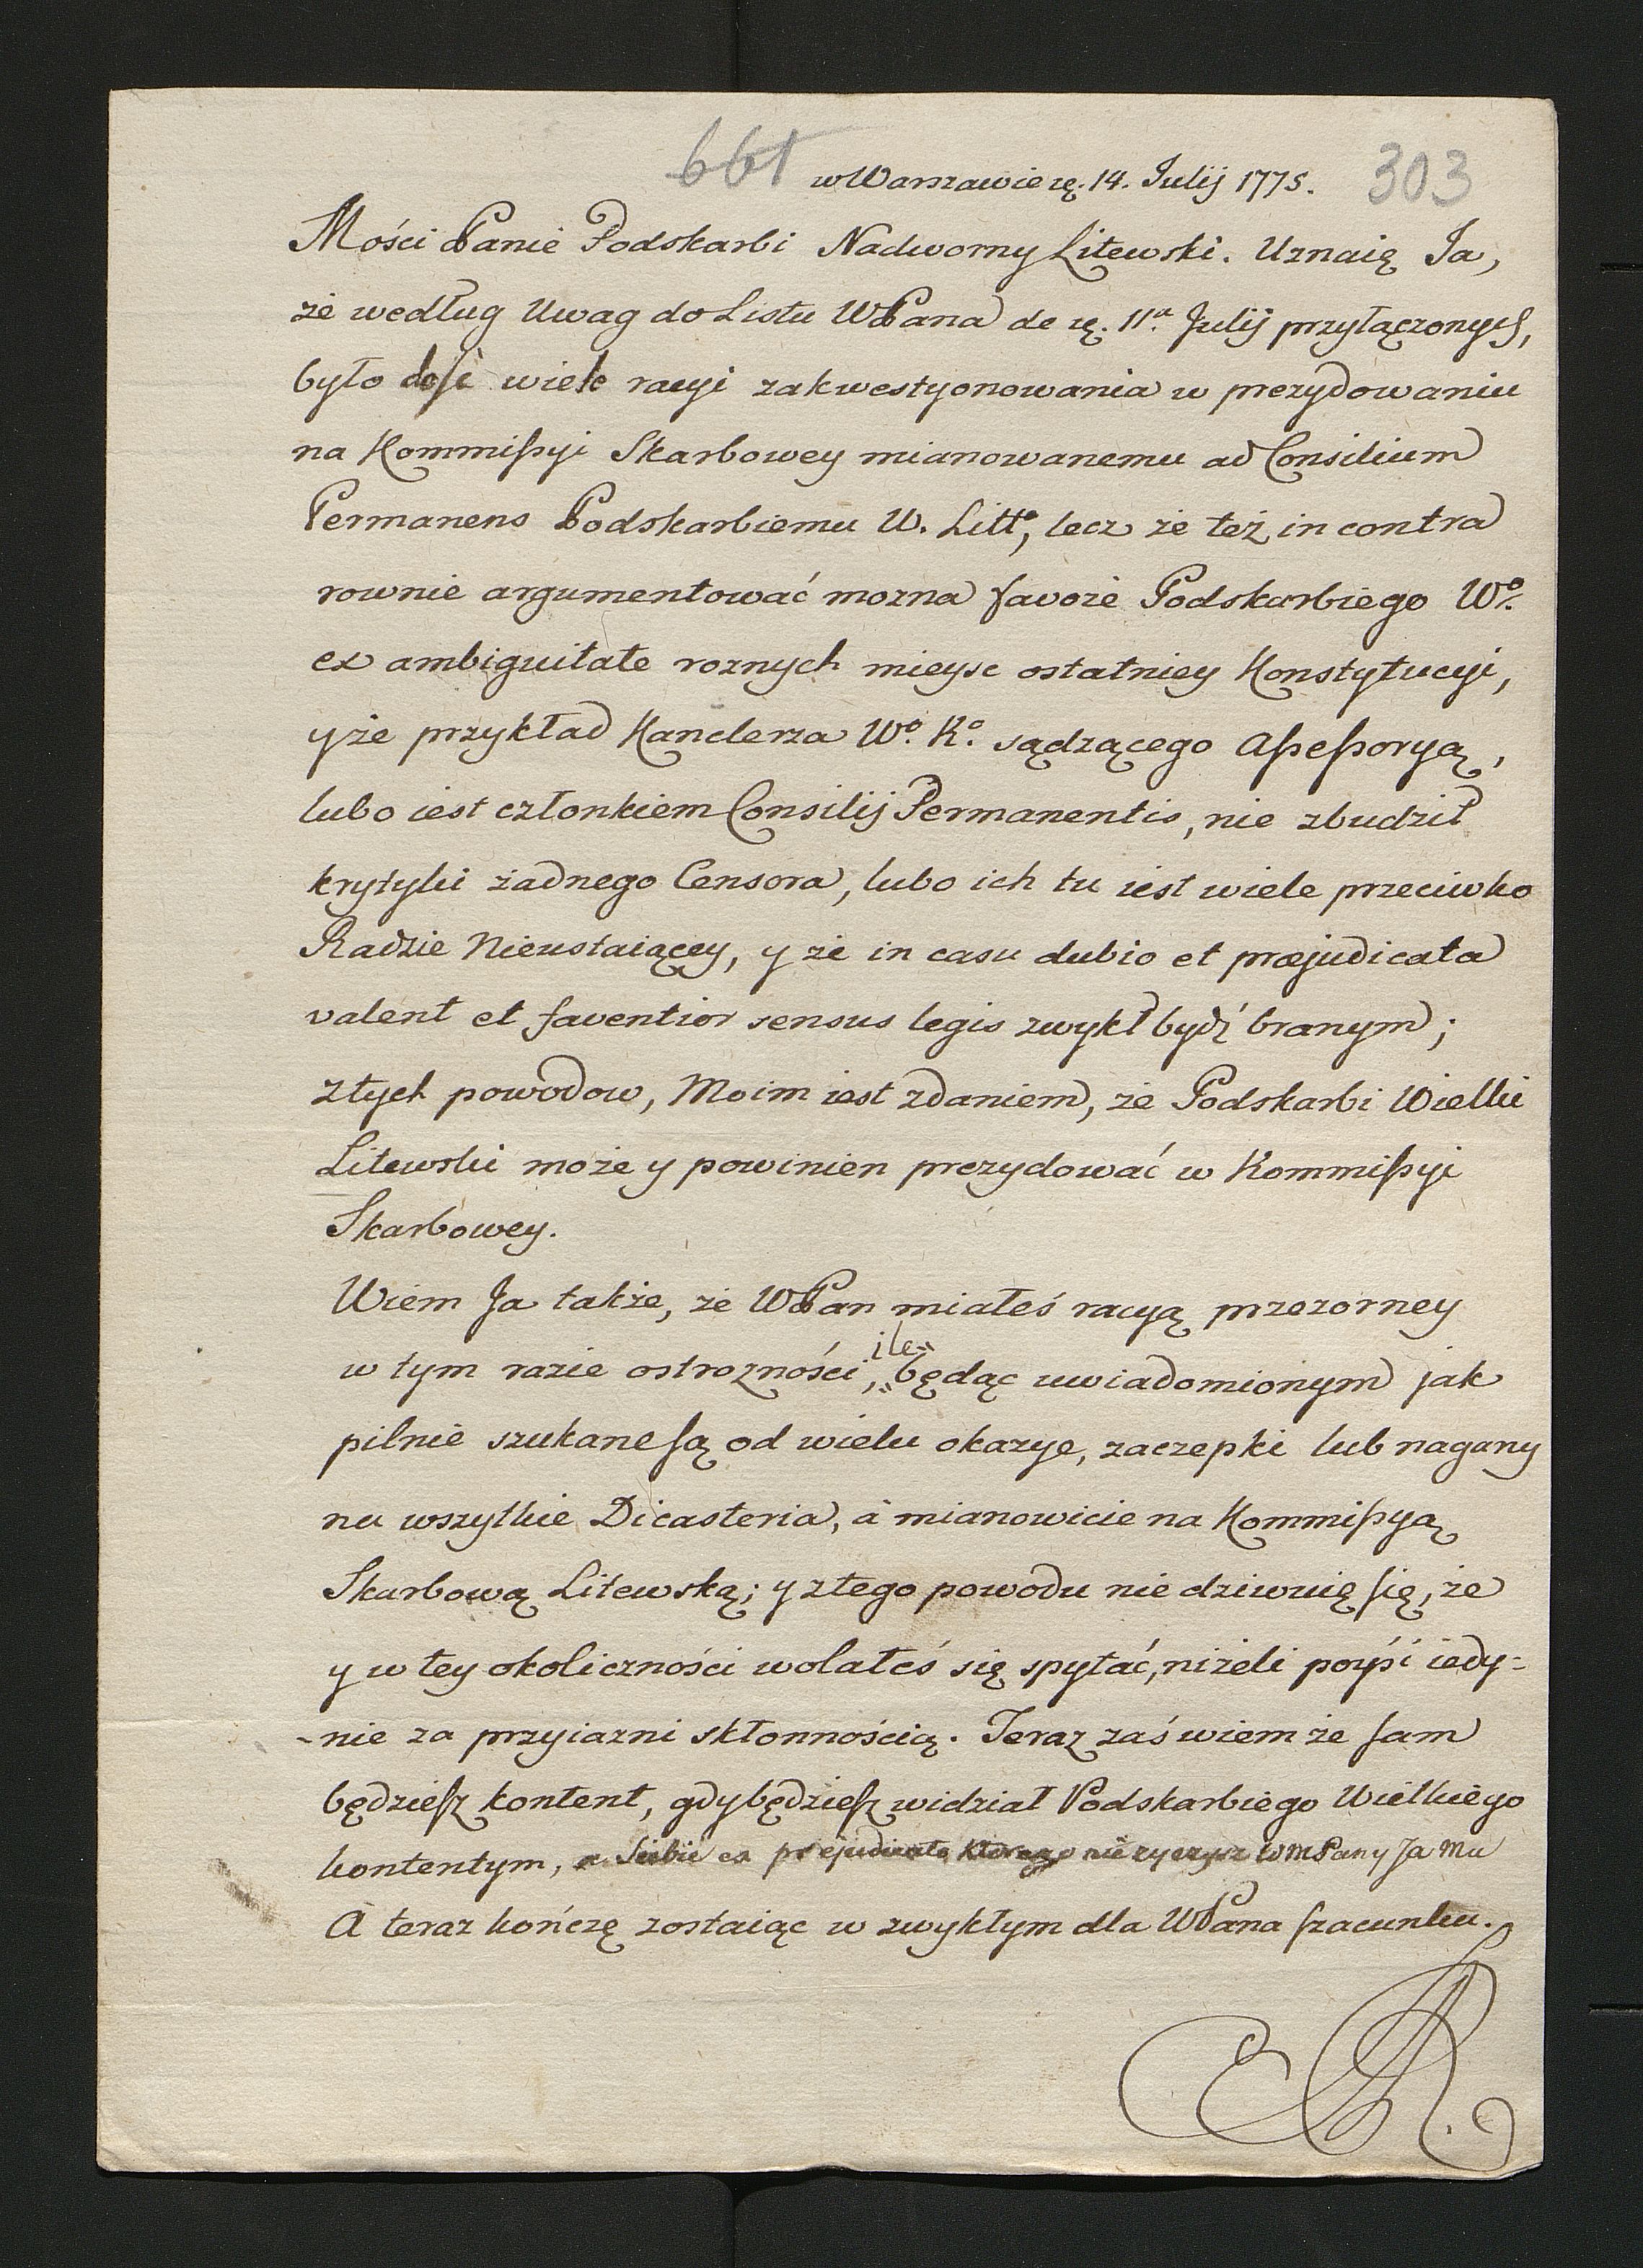 661 w Warszawie ię. 14. Julij 1775. 303
Mości Panie Podskarbi Nadworny Litewski. Uznaię Ja,
że według Uwag do Listu WPana de ię. 11ª Julij przyłączonych,
było dosić wiele racyi zakwestyonowania w prezydowaniu
na Kommissyi Skarbowey mianowanemu ad Consilium
Permanens Podskarbiemu W. Litt°, lecz że też in contra
rownie argumentować mozna favore Podskarbiego W°.
ex ambiguitate roznych mieysc ostatniey Konstytucyi,
y że przykład Kanclerza W°. K°. sądzącego Assessoryą,
lubo iest członkiem Consilij Permanentis, nie zbudził
krytyki żadnego Censora, lubo ich tu iest wiele przeciwko
Radzie Nieustaiącey, y że in casu dubio et præjudicata
valent et faventior sensus legis zwykł bydź branym;
z tych powodow, Moim iest zdaniem, że Podskarbi Wielki
Litewski może y powinien prezydować w Kommissyi
Skarbowey.
Wiem Ja także, że WPan miałeś racyą przezorney
w tym razie ostrozności, ile będąc uwiadomionym jak
pilnie szukane są od wielu okazye, zaczepki lub nagany
na wszytkie Dicasteria, à mianowicie na Kommissyą
Skarbową Litewską; y z tego powodu nie dziwuię się, że
y w tey okoliczności wolałeś się spytać, niżeli poyśi iedy=
-nie za przyiazni skłonnością. Teraz zaś wiem że sam
będziesz kontent, gdy będziesz widział Podskarbiego Wielkiego
kontentym, a Siebie ex prejudicate ktorego nie zyczysz WMPan y Ja Mu
A teraz kończę zostaiąc w zwykłym dla WPana szacunku.